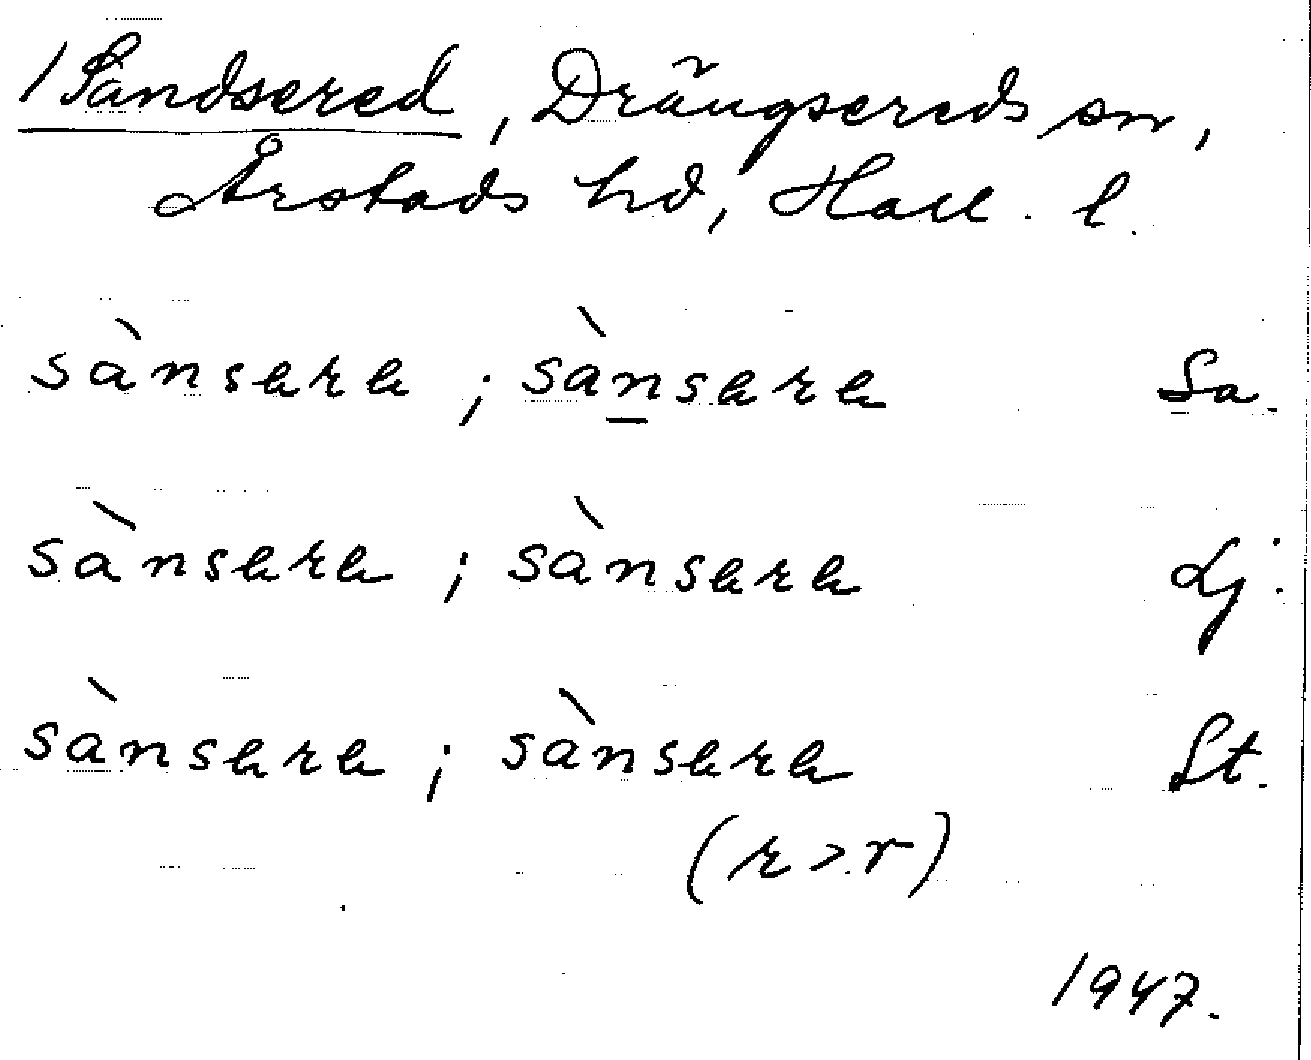 /Sandsered, Drängsereds sn,
Årstads hd, Hall. l.
sànsere ; sànsere Sa.
sànsere ; sànsere Lj.
sànsere ; sànsere St.
(r > r)
1947.